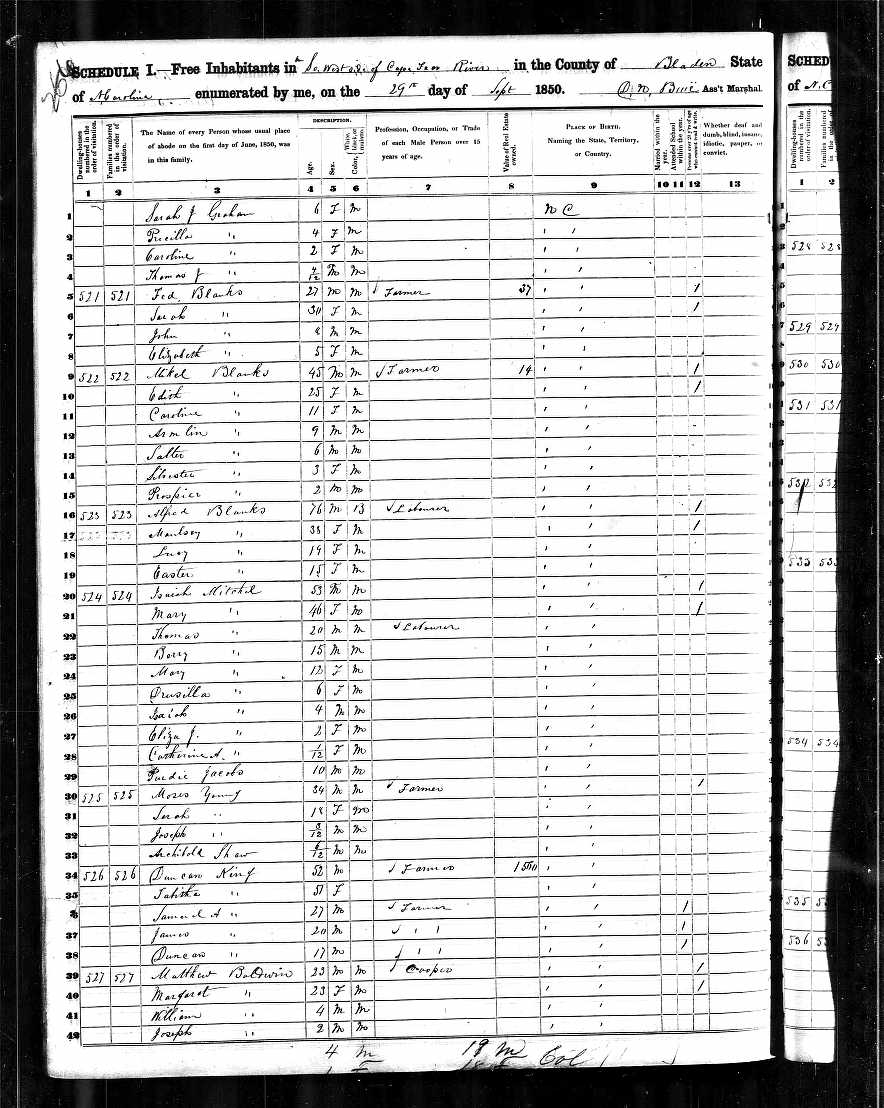 SCHEDULE I.—Free Inhabitants in So. West side of Cape Fear River in the County of Bladen State
of N Carolina enumerated by me, on the 29th day of Sept 1850. Ass't Marshal.
Dwelling-houses numbered in the order of visitation.
Families numbered in the order of visitation.
The Name of every Person whose usual place of abode on the first day of June, 1850, was in this family.
DESCRIPTION.
Age.
Sex.
Color, White, black, or mulatto.
Profession, Occupation, or Trade of each Male Person over 15 years of age.
Value of Real Estate owned.
PLACE OF BIRTH.
Naming the State, Territory, or Country.
Married within the year.
Attended School within the year.
Persons over 20 y'rs of age who cannot read & write.
Whether deaf and dumb, blind, insane, idiotic, pauper, or convict.
1 2 3 4 5 6 7 8 9 10 11 12 13
1 Sarah J Graham 6 F M N C
2 Precilla " 4 F M " "
3 Caroline " 2 F M " "
4 Thomas J " 4/12 M M " "
5 521 521 Fed. Blanks 27 M M Farmer 37 " " 1
6 Sarah " 30 F M " " 1
7 John " 8 M M " "
8 Elizabeth " 5 F M " "
9 522 522 Mikel Blanks 45 M M Farmer 14 " " 1
10 Edith " 25 F M " " 1
11 Caroline " 11 F M " "
12 Armlin " 9 M M " "
13 Salter " 6 M M " "
14 Silvester " 3 F M " "
15 Prospier " 2 M M " "
16 523 523 Alfred Blanks 76 M B Labourer " " 1
17 Moulsey " 38 F M " " 1
18 Lucy " 19 F M " "
19 Easter " 15 F M " "
20 524 524 Isaiah Mitchel 53 M M " " 1
21 Mary " 46 F M " " 1
22 Thomas " 20 M M Labourer " "
23 Berry " 15 M M " "
24 Mary " 12 F M " "
25 Drusilla " 6 F M " "
26 Isaiah " 4 M M " "
27 Eliza J. " 2 F M " "
28 Catherine A. " 1/12 F M " "
29 Purdie Jacobs 10 M M " "
30 525 525 Moses Young 34 M M Farmer " " 1
31 Sarah " 18 F M " "
32 Joseph " 8/12 M M " "
33 Archibald Shaw 6/12 M M " "
34 526 526 Duncan King 52 M Farmer 1500 " "
35 Tabitha " 51 F " "
36 Samuel A " 27 M Farmer " " 1
37 James " 20 M " " " " 1
38 Duncan " 17 M " " " " 1
39 527 527 Matthew Baldwin 23 M M Cooper " " 1
40 Margaret " 23 F M " " 1
41 William " 4 M M " "
42 Joseph " 2 M M " "
4 M 18 M Col
SCHED
of N. C
Dwelling-houses numbered in the order of visitation.
Families numbered in the order of visitation.
1 2
528 528
529 529
530 530
531 531
532 532
533 533
534 534
535
536